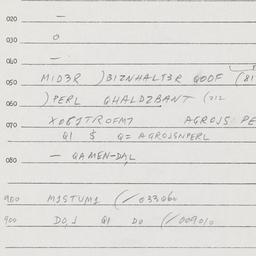 020 —
030 o
040 —
050 MID3R )BIZNHALT3R QOOF (81
060 )PERL QHALDZBANT (212
070 X061TROFM7 AGROJS PE
Q1 $ Q= AGROJSNPERL
080 — QAMEN-DAL
900 M1STUM1 (/033060
900 DO,J Q1 DO (/009010